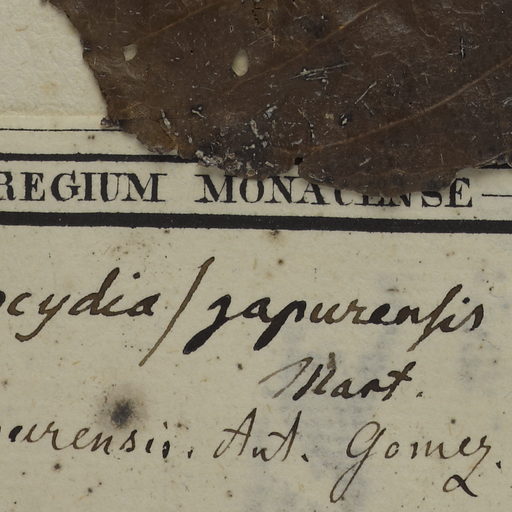 REGIUM MONACENSE
ocydia / japurensis
Mart.
urensis. Ant. Gomez.